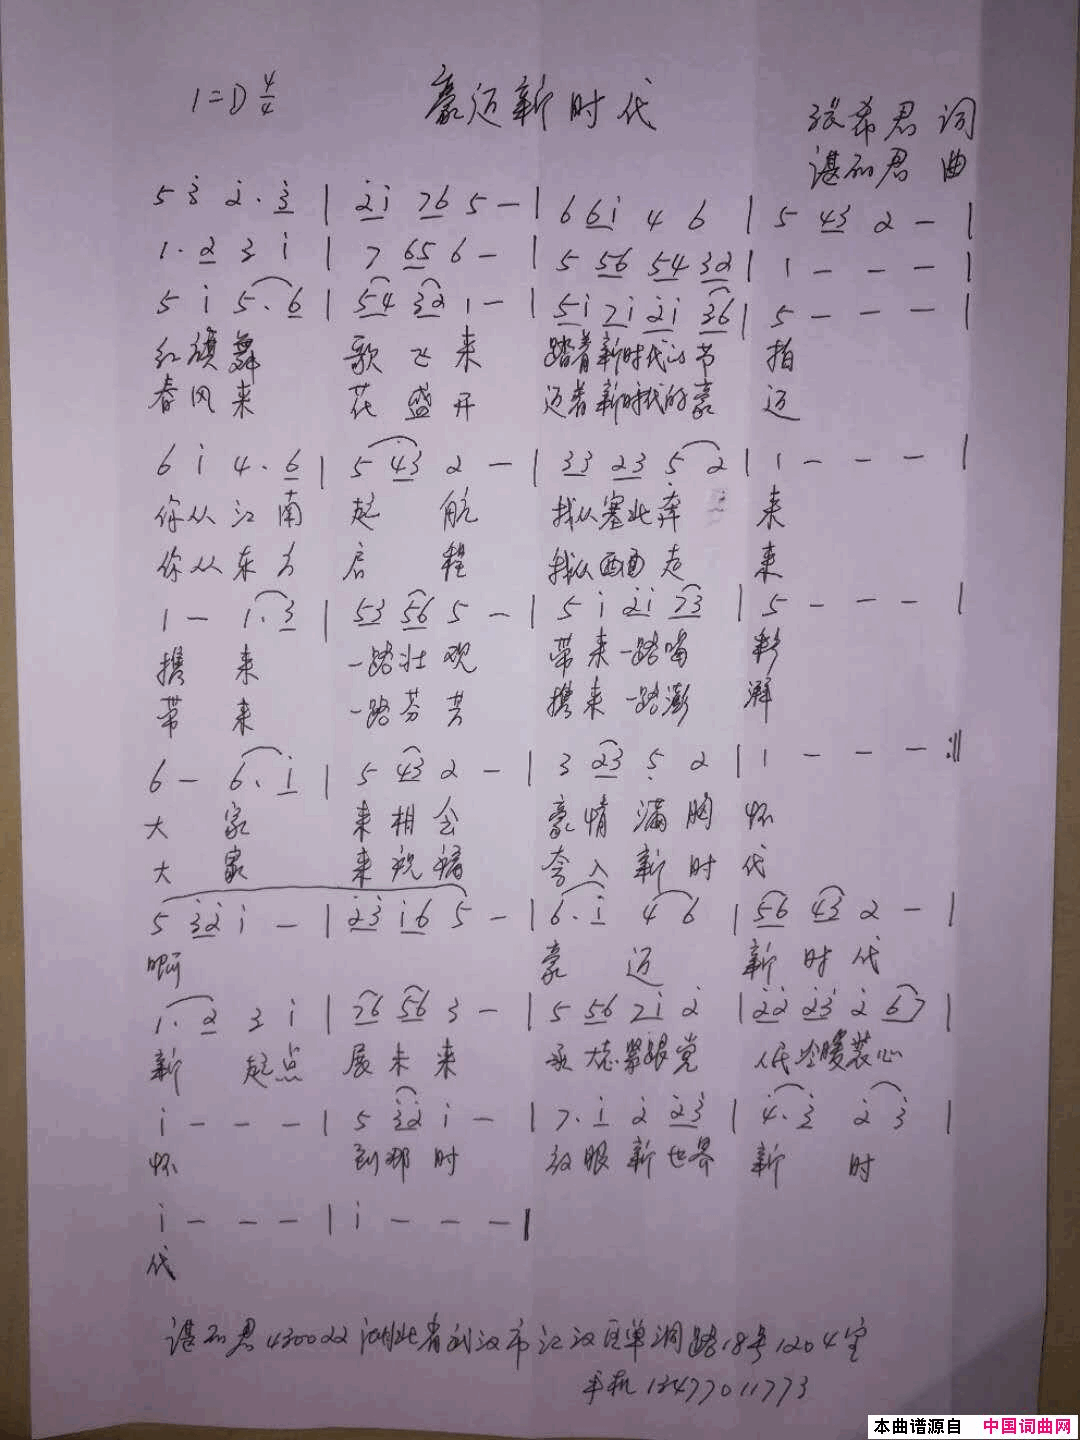 1=D 4/4 豪迈新时代
张希君 词
谌石君 曲
5 3̇ 2̇. 3̇ | 2̇1̇ 76 5 - | 6 61̇ 4 6 | 5 43 2 - |
1. 2 3 1̇ | 7 65 6 - | 5 56 54 32 | 1 - - - |
5 1̇ 5. 6 | 54 32 1 - | 51̇ 71̇ 2̇1̇ 36 | 5 - - - |
红旗舞 歌飞来 踏着新时代的节 拍
春风来 花盛开 迈着新时代的豪 迈
6 1̇ 4. 6 | 5 43 2 - | 33 23 5̣ 2 | 1 - - - |
你从江南 起航 我从塞北奔 来
你从东方 启程 我从西面走 来
1 - 1. 3 | 53 56 5 - | 5 1̇ 2̇1̇ 73 | 5 - - - |
携来 一路壮观 带来一路喝 彩
带来 一路芬芳 携来一路澎 湃
6 - 6. 1̇ | 5 43 2 - | 3 23 5̣ 2 | 1 - - - :||
大家 来相会 豪情满胸 怀
大家 来祝福 夸入新时 代
5 3̇2̇ 1̇ - | 2̇3̇ 1̇6 5 - | 6. 1̇ 4 6 | 56 43 2 - |
啊 豪迈 新时代
1. 2 3 1̇ | 76 56 3 - | 5 56 71̇ 2̇ | 2̇2̇ 2̇3̇ 2̇ 67 |
新起点 展未来 永志紧跟党 人民冷暖装心
1̇ - - - | 5 3̇2̇ 1̇ - | 7. 1̇ 2̇ 2̇3̇ | 4̇. 3̇ 2̇ 3̇ |
怀 到那时 新世界 新时
1̇ - - - | 1̇ - - - |
代
谌石君430022湖北省武汉市江汉区单洞路18号1204室
手机13477011773
本曲谱源自 中国词曲网